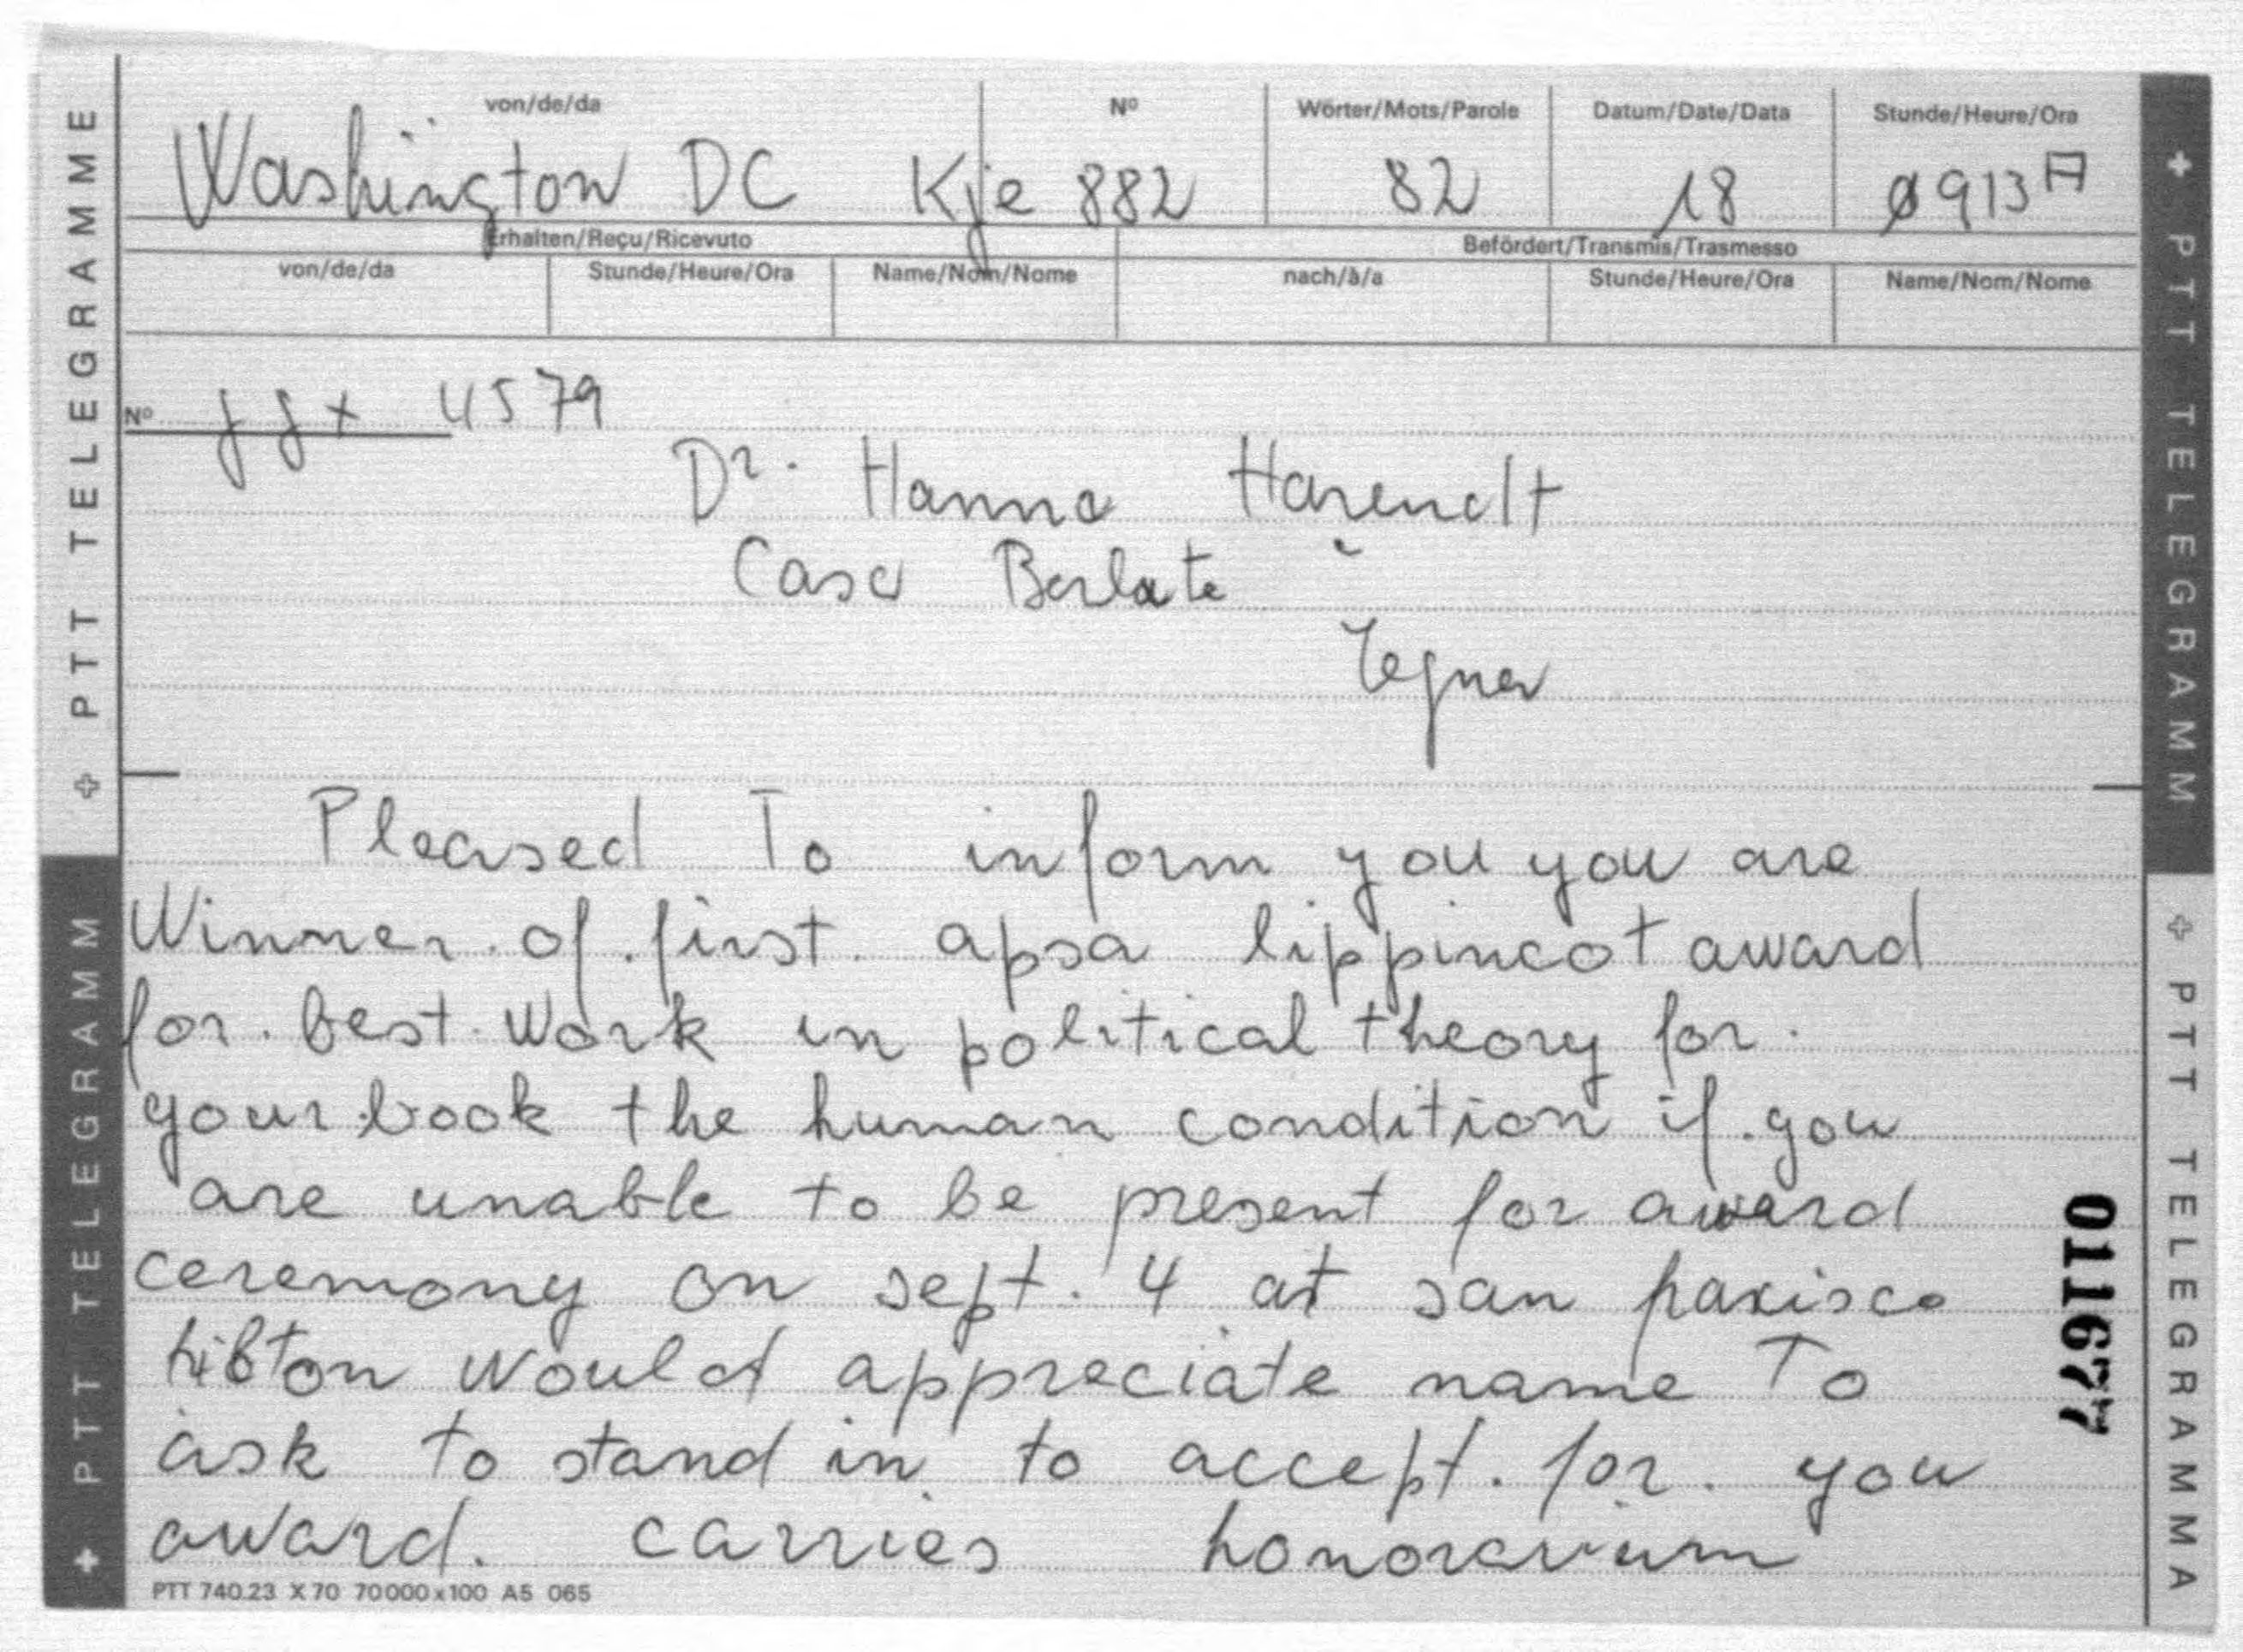 von/de/da Nº Wörter/Mots/Parole Datum/Date/Data Stunde/Heure/Ora
Washington DC Kje 882 82 18 0913 A
Erhalten/Reçu/Ricevuto Befördert/Transmis/Trasmesso
von/de/da Stunde/Heure/Ora Name/Nom/Nome nach/à/a Stunde/Heure/Ora Name/Nom/Nome
Nº 4579
Dr. Hanna Harendt
Casa Berlate
Tegna
Pleased To inform you you are
Winner of first apsa lippincot award
for best work in political theory for
your book the human condition if you
are unable to be present for award
ceremony on sept. 4 at san
would appreciate name To
ask to stand in to accept for you
award. carries honorarium
PTT 740.23 X 70 70000x100 A5 065
011677
PTT TELEGRAMM PTT TELEGRAMME
PTT TELEGRAMM PTT TELEGRAMMA